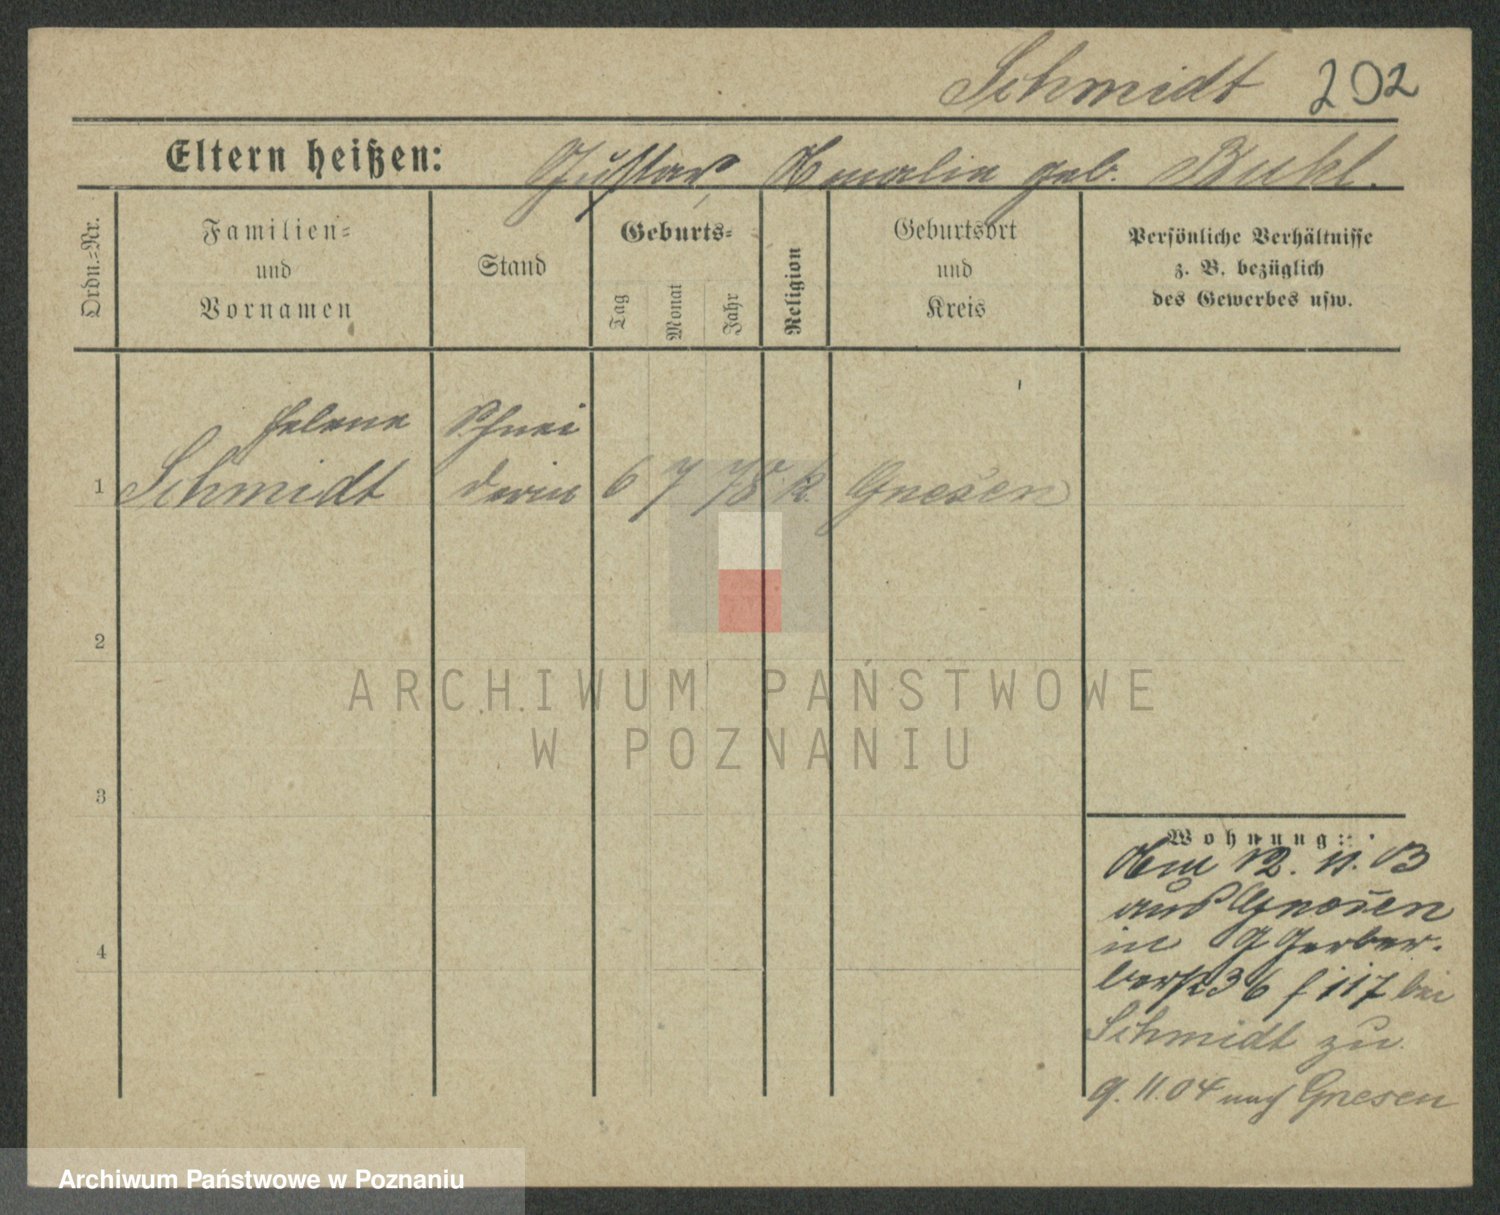 Schmidt 202
Eltern heißen: Gustav, Amalia geb. Buhl.
Ordn.-Nr.
Familien-
und
Vornamen
Stand
Geburts-
Tag
Monat
Jahr
Religion
Geburtsort
und
Kreis
Persönliche Verhältnisse
z. B. bezüglich
des Gewerbes usw.
Helene Schnei
1 Schmidt derin 6 7 78 k Gnesen
2
ARCHIWUM PAŃSTWOWE
W POZNANIU
3
Wohnung:
Am 12. 11. 03
aus Gnesen
in
4
36 117 bei
Schmidt zu
9. 11. 04 nach Gnesen
Archiwum Państwowe w Poznaniu